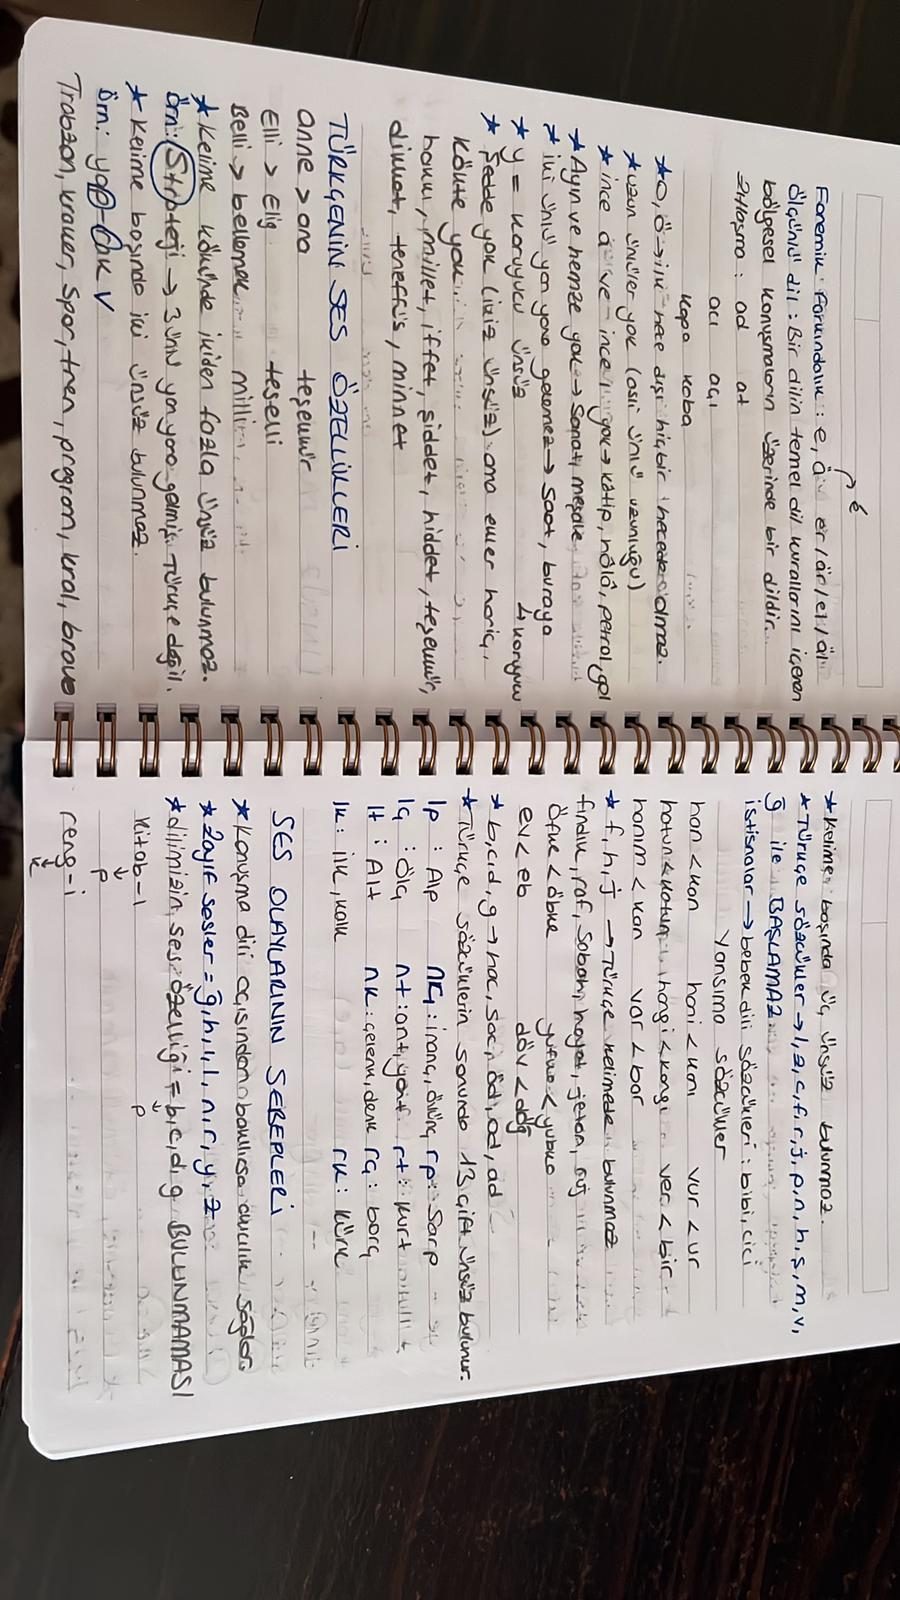 Fonemik Farkındalık : e, ä er/är/el/äl
é
ölçünlü dil : Bir dilin temel dil kurallarını içeren
bölgesel konuşmaların üzerinde bir dildir.
Zıtlaşma : ad at
acı açı
kapa kaba
★ o, ö → ilk hece dışı hiçbir hecede olmaz.
★ uzun ünlüler yok (asli ünlü uzunluğu)
★ ince â ve ince l yok → kâtip, hâlâ, petrol, gol
★ Ayn ve hemze yok → Sanat, meşale
★ iki ünlü yan yana gelemez → Saat, buraya
★ y = koruyucu ünsüz ↳ koruyucu
★ Şedde yok (ikiz ünsüz) ama ekler hariç,
Kökte yok
hakk, millet, iffet, şiddet, hiddet, teşekkür,
dikkat, teneffüs, minnet
TÜRKÇENİN SES ÖZELLİKLERİ
Anne > ana teşekkür
Elli > Elig teselli
Belli > bellemek millî
★ Kelime kökünde ikiden fazla ünsüz bulunmaz.
Örn: Strateji → 3 ünlü yan yana gelmiş Türkçe değil.
★ Kelime başında iki ünsüz bulunmaz.
Örn:
Trabzon, kraker, Spor, tren, program, kral, bravo
★ Kelime başında üç ünsüz bulunmaz.
★ Türkçe sözcükler → l, z, c, f, r, j, p, n, h, ş, m, v,
ğ ile BAŞLAMAZ
istisnalar → bebek dili sözcükleri : bibi, cici
Yansıma sözcükler
han < kan hani < kanı vur < ur
hatun < katun hangi < kangı ver < bir
hanım < kan var < bar
★ f, h, j → Türkçe kelimede bulunmaz
fındık, raf, Sabah, hayat, jeton, aj
Öfke < öbke yufka < yubka
ev < eb döv < döğ
★ b, c, d, g → haç, saç, öd, od, ad
★ Türkçe sözcüklerin sonunda 13 çift ünsüz bulunur.
lp : Alp nç : inanç, ölünç rp : Sarp
lç : Ölç nt : ant, yont rt : kurt
lt : Alt nk : çelenk, denk rç : borç
lk : ilk, kalk rk : Kürk
SES OLAYLARININ SEBEPLERİ
★ Konuşma dili açısından bakılırsa akıcılık sağlar.
★ Zayıf sesler = ğ, h, ı, l, n, r, y, z
★ dilimizin ses özelliği = b, c, d, g BULUNMAMASI
p
Kitab-ı
p
reng-i
k